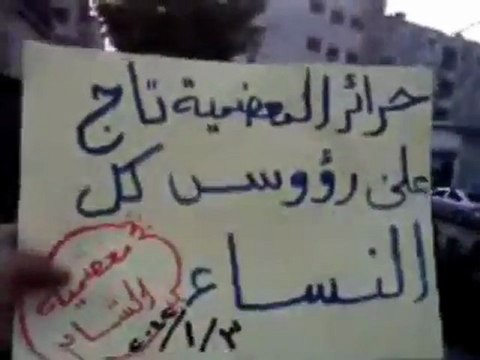 حرائر المعضمية تاج
على رؤوس كل
النساء
معضمية
الشام
٣/١/٢٠١٤